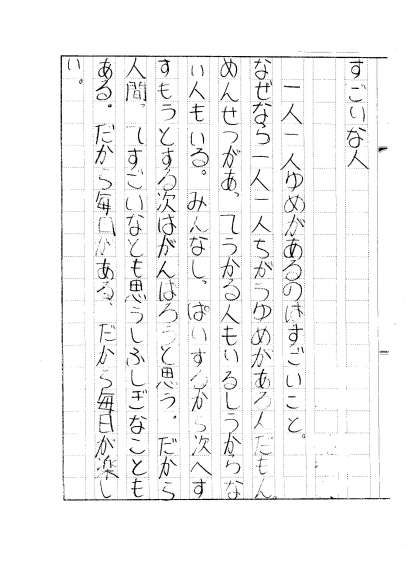 すごいな人
一人一人ゆめがあるのはすごいこと。
なぜなら一人一人ちがうゆめがある人だもん。
めんせつがあってうかる人もいるしうからな
い人もいる。みんなしっぱいするから次へす
すもうとする次はがんばろうと思う。だから
人間ってすごいなとも思うしふしぎなことも
ある。だから毎日がある、だから毎日が楽し
い。